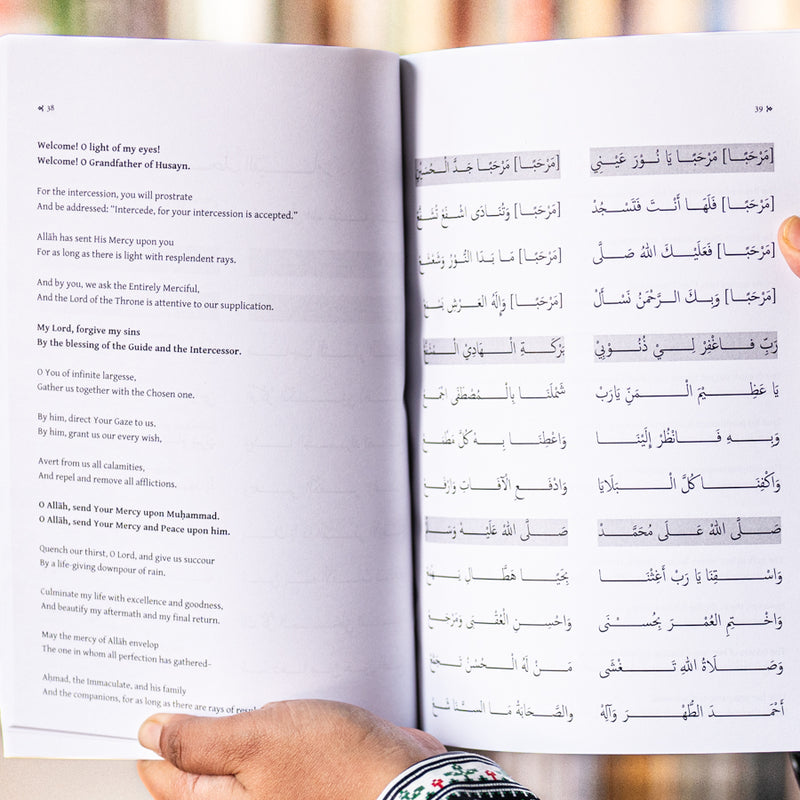 38
Welcome! O light of my eyes!
Welcome! O Grandfather of Husayn.
For the intercession, you will prostrate
And be addressed: “Intercede, for your intercession is accepted.”
Allāh has sent His Mercy upon you
For as long as there is light with resplendent rays.
And by you, we ask the Entirely Merciful,
And the Lord of the Throne is attentive to our supplication.
My Lord, forgive my sins
By the blessing of the Guide and the Intercessor.
O You of infinite largesse,
Gather us together with the Chosen one.
By him, direct Your Gaze to us.
By him, grant us our every wish,
Avert from us all calamities,
And repel and remove all afflictions.
O Allāh, send Your Mercy upon Muḥammad.
O Allāh, send Your Mercy and Peace upon him.
Quench our thirst, O Lord, and give us succour
By a life-giving downpour of rain.
Culminate my life with excellence and goodness,
And beautify my aftermath and my final return.
May the mercy of Allāh envelop
The one in whom all perfection has gathered–
Aḥmad, the Immaculate, and his family
And the companions, for as long as there are rays of
39
[مَرْحَبًا] مَرْحَبًا يَا نُوْرَ عَيْنِي [مَرْحَبًا] مَرْحَبًا جَدَّ الْحُسَيْنِ
[مَرْحَبًا] فَلَهَا أَنْتَ فَتَسْجُدْ [مَرْحَبًا] وَتُنَادَى اشْفَعْ تُشَفَّعْ
[مَرْحَبًا] فَعَلَيْكَ اللهُ صَلَّى [مَرْحَبًا] مَا بَدَا النُّوْرُ وَشَعْشَعْ
[مَرْحَبًا] وَبِكَ الرَّحْمٰنُ نَسْأَلْ [مَرْحَبًا] وَإِلَهُ الْعَرْشِ
رَبِّ فَاغْفِرْ لِيْ ذُنُوْبِيْ بَرْكَةِ الْهَادِيْ
يَا عَظِيْمَ الْمَنِّ يَارَبْ شَمْلَنَا بِالْمُصْطَفَى اجْمَعْ
وَبِهِ فَانْظُرْ إِلَيْنَا وَاعْطِنَا بِهْ كُلَّ مَطْمَعْ
وَاكْفِنَا كُلَّ الْبَلَايَا وَادْفَعِ الْآفَاتِ وَارْفَعْ
صَلَّى اللهُ عَلَى مُحَمَّدْ صَلَّى اللهُ عَلَيْهِ
وَاسْقِنَا يَا رَبْ أَغِثْنَا بِحَيًا هَطَّالِ
وَاخْتِمِ الْعُمْرَ بِحُسْنَى وَاحْسِنِ الْعُقْبَى وَمَرْجَعْ
وَصَلَاةُ اللهِ تَغْشَى مَنْ لَهُ الْحُسْنُ تَجَمَّعْ
أَحْمَدَ الطُّهْرَ وَآلِهْ والصَّحَابَةْ مَا السَّنَا شَعْ